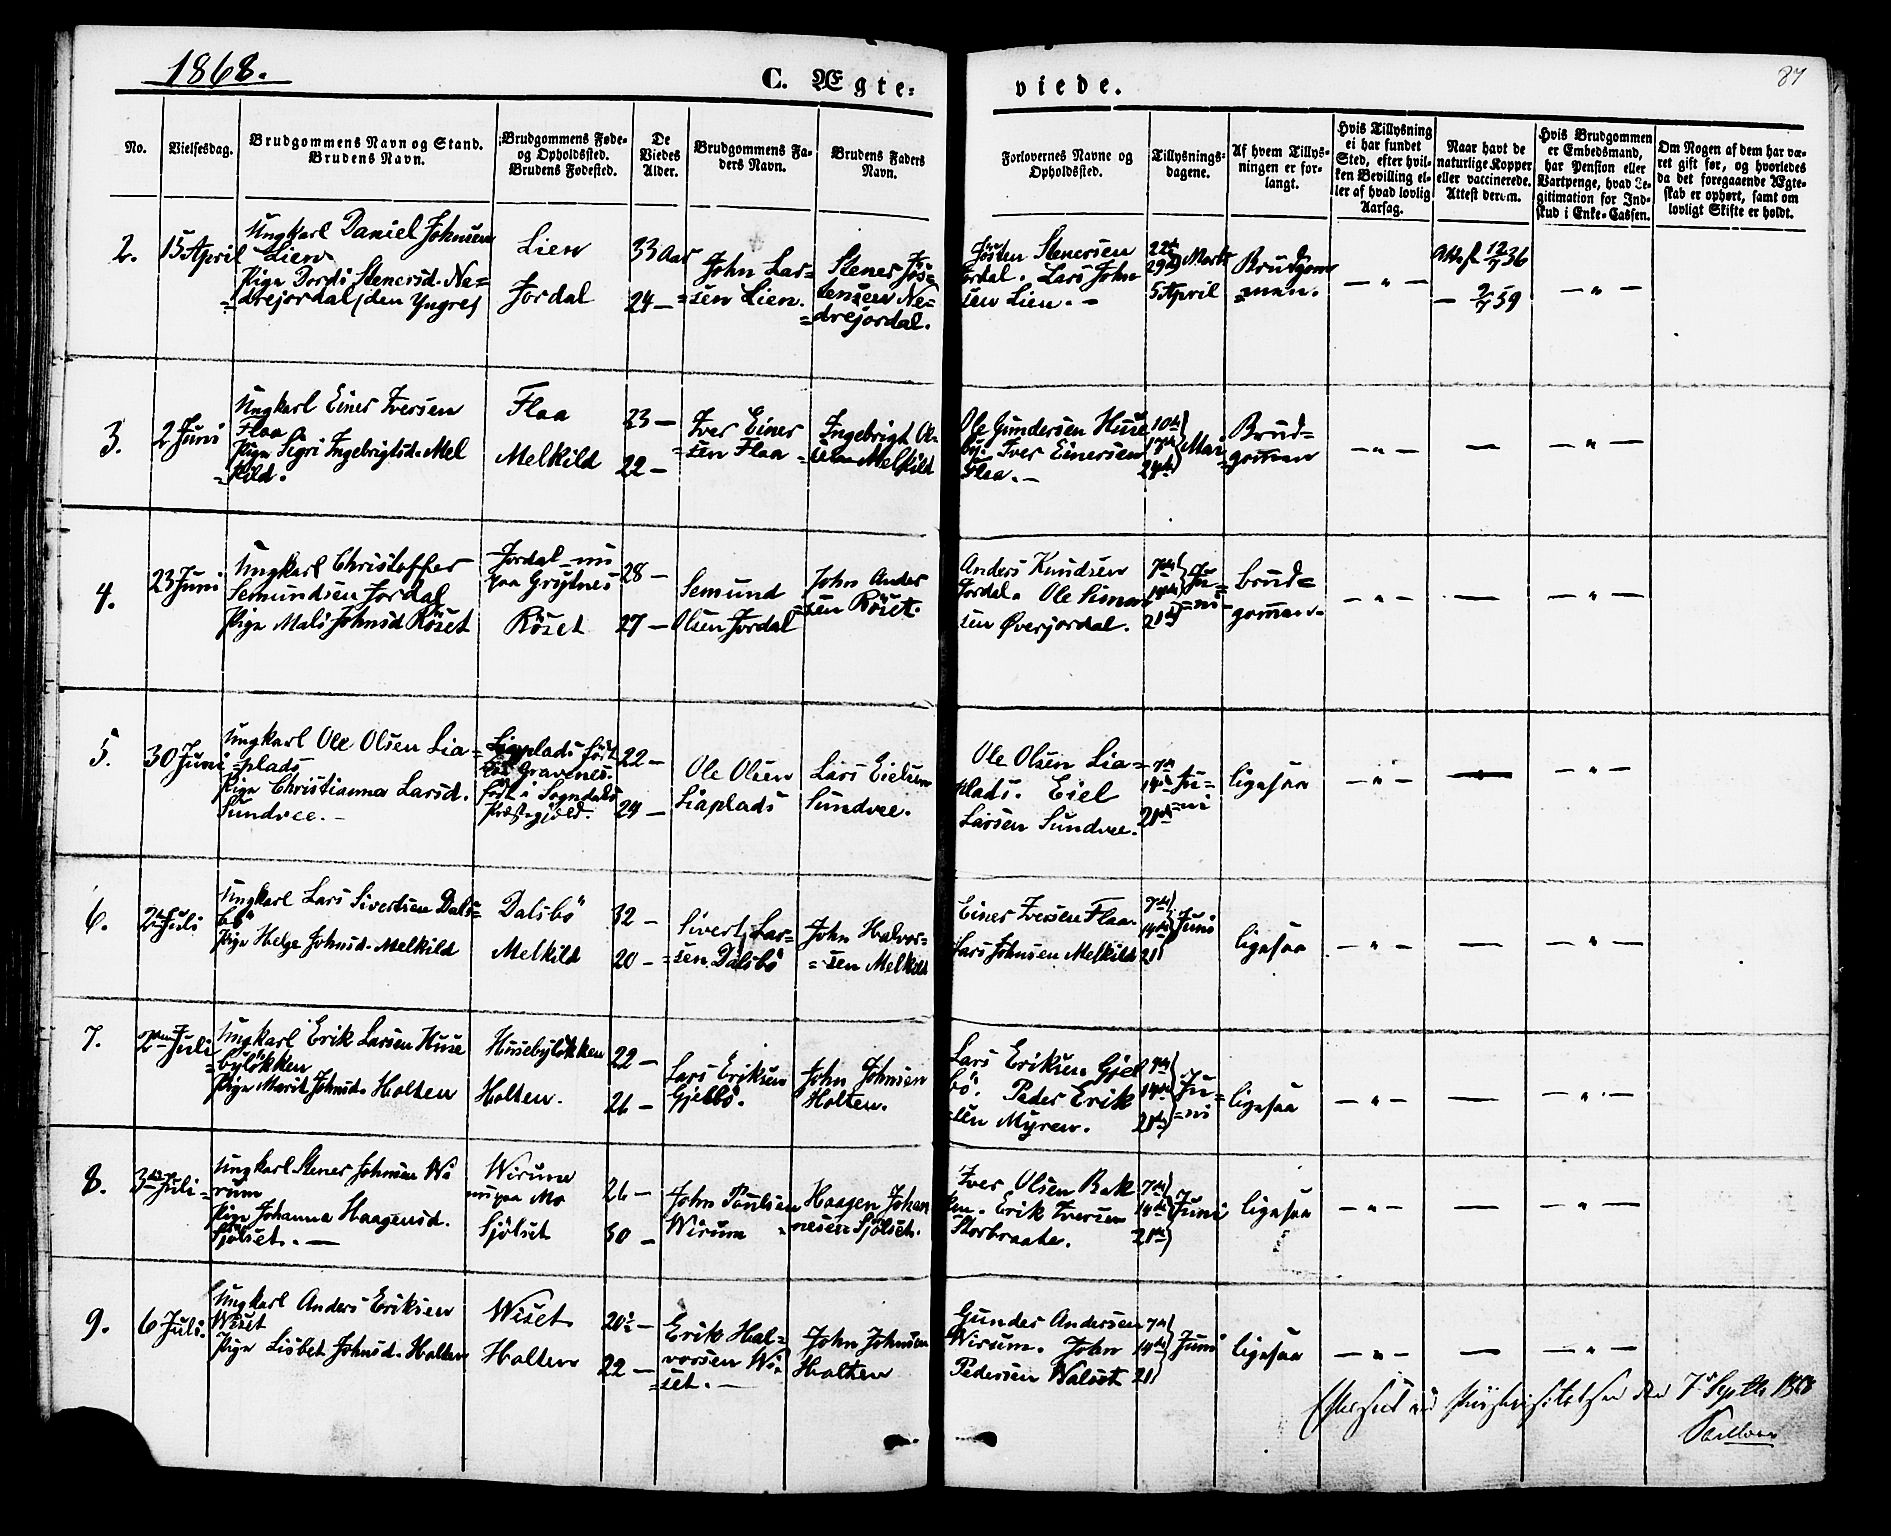 1868.
C. Ægte-
viede.
87
No.
Vielsesdag.
Brudgommens Navn og Stand.
Brudens Navn.
Brudgommens Føde-
og Opholdssted.
Brudens Fødested.
De
Viedes
Alder.
Brudgommens Fa-
ders Navn.
Brudens Faders
Navn.
Forlovernes Navne og
Opholdssted.
Tillysnings-
dagene.
Af hvem Tillys-
ningen er for-
langt.
Hvis Tillysning
ei har fundet
Sted, efter hvil-
ken Bevilling el-
ler af hvad lovlig
Aarsag.
Naar havt de
naturlige Kopper
eller vaccinerede.
Attest derom.
Hvis Brudgommen
er Embedsmand,
har Pension eller
Vartpenge, hvad Le-
gitimation for Ind-
skud i Enke-Cassen.
Om Nogen af dem har væ-
ret gift før, og hvorledes
da det foregaaende Ægte-
skab er ophørt, samt om
lovligt Skifte er holdt.
2.
15 April
Ungkarl Daniel Johnsen
Lien
Pige Dordi Stenersd. Ne-
=drejordal (den Yngre)
Lien
Jordal
33 Aar
24 —
John Lar-
=sen Lien.
Stener Jos-
tensen Ne-
=drejordal.
Josten Stenersen
Jordal. Lars John
sen Lien. —
22de
29de Marts
5 April
Brudgom-
=men.
— " —
Att. fr. 12/7 36
— 2/7 59
— " —
3.
2 Juni
Ungkarl Einer Iversen
Flaa
Pige Sigri Ingebrigtsd. Mel
=kild.
Flaa
Melkild
23 —
22 —
Iver Einer
=sen Flaa
Ingebrigt Ol-
=sen Melkild
Ole Gundersen Huse
by. Iver Einersen
Flaa. —
10de
17de
24de
Mai
Brud=
gommen
— " —
—
— " —
4.
23 Juni
Ungkarl Christoffer
Semundsen Jordal
Pige Mali Johnsd. Röset
Jordal nu
paa Grytnes
Röset
28 —
27 —
Semund
Olsen Jordal
John Anders
=sen Röset.
Anders Knudsen
Jordal. Ole Simon
sen Øverjordal.
7de
14de
21de
Ju-
=ni
brud=
gommen.
— " —
—
— " —
5.
30 Juni
Ungkarl Ole Olsen Lia-
=plads
Pige Christianna Larsd.
Sundvee. —
Liaplads født
paa Gravenes.
født i Sogndals
Præstegjeld.
22 —
24 —
Ole Olsen
Liaplads
Lars Eielsen
Sundvee.
Ole Olsen Lia-
plads. Eiel
Larsen Sundvee.
7de
14de
21de
Ju-
=ni
ligesaa
— " —
—
— " —
6.
2den Juli
Ungkarl Lars Sivertsen Dals-
bö
Pige Helge Johnsd. Melkild
Dalsbö
Melkild
32 —
20 —
Sivert Lar-
=sen Dalsbö
John Halvor-
=sen Melkild
Einer Iversen Flaa.
Lars Johnsen Melkild
7de
14de
21
Juni
ligesaa
— " —
—
— " —
7.
2den Juli
Ungkarl Erik Larsen Huse
=bylökken
Pige Marit Johnsd. Holten
Husebylökken
Holten.
22 —
26 —
Lars Eriksen
Gjelbö.
John Johnsen
Holten.
Lars Eriksen Gjel
bö. Peder Erik
=sen Myren.
7de
14de
21de
Ju-
=ni
ligesaa
— " —
—
— " —
8.
3die Juli
Ungkarl Stener Johnsen Wi
=rum
Pige Johanna Haagensd.
Sjölset. —
Wirum
nu paa Mo
Sjölset
26 —
30 —
John Poulsen
Wirum
Haagen Johan
=nesen Sjölset.
Iver Olsen Bak
ken. Erik Iversen
Storbraate.
7de
14de
21de
Juni
ligesaa
— " —
—
— " —
9.
6 Juli.
Ungkarl Anders Eriksen
Wiset
Pige Lisbet Johnsd. Holten
Wiset
Holten
20½ —
22 —
Erik Hal-
vorsen Wi-
=set. —
John Johnsen
Holten
Gunder Andersen
Wirum. John
Pedersen Walset
7de
14de
21
Juni
ligesaa
— " —
—
— " —
Efterseet ved den 7 Septb. 1868